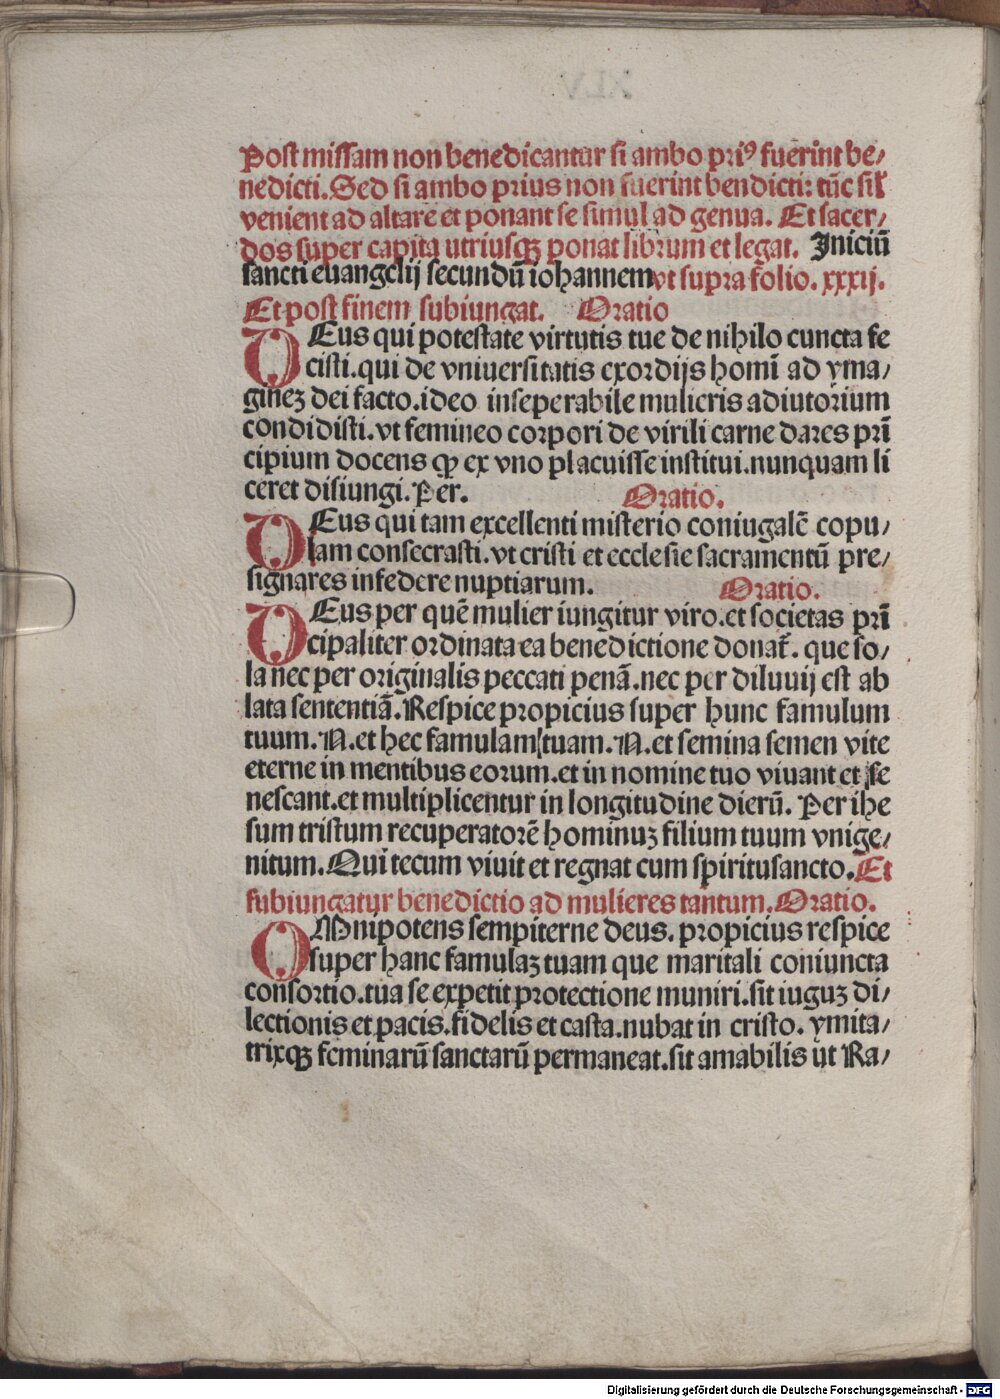 Post missam non benedicantur si ambo priꝰ fuerint be/
nedicti. Sed si ambo prius non fuerint bendicti: tūc sil̄
venient ad altare et ponant se simul ad genua. Et sacer/
dos super capita utriusqꝫ ponat librum et legat. Iniciū
sancti euangelij secundū iohannem vt supra folio. xxxij.
Et post finem subiungat. Oratio
DEus qui potestate virtutis tue de nihilo cuncta fe
cisti. qui de vniuersitatis exordijs homī ad yma/
gineꝫ dei facto. ideo inseperabile mulieris adiutorium
condidisti. vt femineo corpori de virili carne dares prī
cipium docens ꝙ ex vno placuisse institui. nunquam li
ceret disiungi. Per. Oratio.
DEus qui tam excellenti misterio coniugalē copu/
lam consecrasti. vt cristi et ecclesie sacramentū pre/
signares in federe nuptiarum. Oratio.
DEus per quē mulier iungitur viro. et societas prī
cipaliter ordinata ea benedictione donat̄. que so/
la nec per originalis peccati penā. nec per diluuij est ab
lata sententiā. Respice propicius super hunc famulum
tuum. N. et hec famulam tuam. N. et semina semen vite
eterne in mentibus eorum. et in nomine tuo viuant et se
nescant. et multiplicentur in longitudine dierū. Per ihe
sum tristum recuperatorē hominuꝫ filium tuum vnige/
nitum. Qui tecum viuit et regnat cum spiritusancto. Et
subiungatur benedictio ad mulieres tantum. Oratio.
OMnipotens sempiterne deus. propicius respice
super hanc famulaꝫ tuam que maritali coniuncta
consortio. tua se expetit protectione muniri. sit iuguꝫ di/
lectionis et pacis. fidelis et casta. nubat in cristo. ymita/
trixqꝫ feminarū sanctarū permaneat. sit amabilis ut Ra/
Digitalisierung gefördert durch die Deutsche Forschungsgemeinschaft - DFG